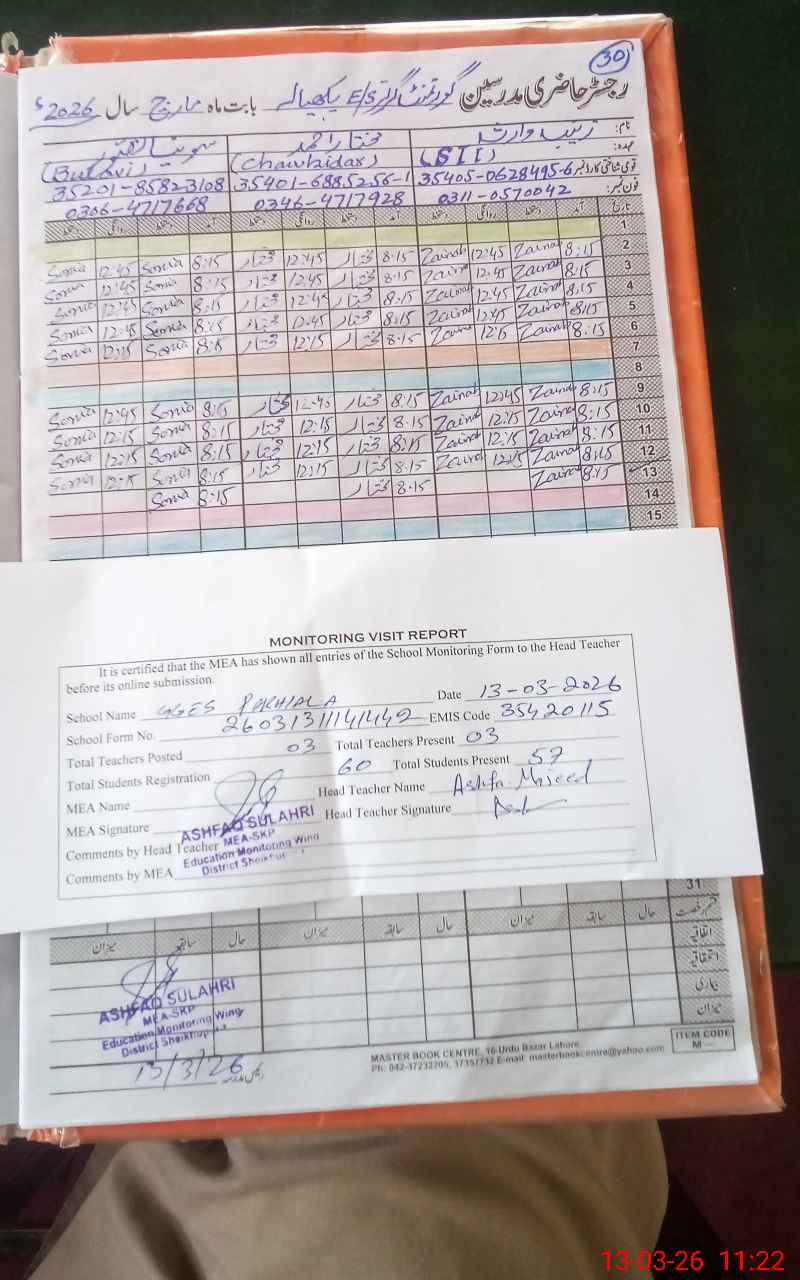 30
رجسٹر حاضری مدرسین گورنمنٹ گرلز E/S پکھیالہ بابت ماہ مارچ سال 2026ء
نام: زینب وارث مختار احمد
عہدہ: (SII) (Chawkidar) (Butavi)
قومی شناختی کارڈ نمبر 35405-0628495-6 35401-6885256-1 35201-85823108
فون نمبر: 0311-0570042 0346-4717928 0306-4717668
تاریخ آمد دستخط روانگی دستخط آمد دستخط روانگی دستخط آمد دستخط روانگی دستخط
1
2 8:15 Zainab 12:45 Zainab 8:15 مختار 12:45 مختار 8:15 Sonia 12:45 Sonia
3 8:15 Zainab 12:45 Zainab 8:15 مختار 12:45 مختار 8:15 Sonia 12:45 Sonia
4 8:15 Zainab 12:45 Zainab 8:15 مختار 12:45 مختار 8:15 Sonia 12:45 Sonia
5 8:15 Zainab 12:45 Zainab 8:15 مختار 12:45 مختار 8:15 Sonia 12:45 Sonia
6 8:15 Zainab 12:15 Zaina 8:15 مختار 12:15 مختار 8:15 Sonia 12:15 Sonia
7
8
9 8:15 Zainab 12:45 Zainab 8:15 مختار 12:40 مختار 8:15 Sonia 12:45 Sonia
10 8:15 Zainab 12:15 Zainab 8:15 مختار 12:15 مختار 8:15 Sonia 12:15 Sonia
11 8:15 Zainab 12:15 Zainab 8:15 مختار 12:15 مختار 8:15 Sonia 12:15 Sonia
12 8:15 Zainab 12:15 Zainab 8:15 مختار 12:15 مختار 8:15 Sonia 12:15 Sonia
13 8:15 Zainab 8:15 مختار 8:15 Sonia
14
15
MONITORING VISIT REPORT
It is certified that the MEA has shown all entries of the School Monitoring Form to the Head Teacher
before its online submission.
School Name GGES PAKHIALA Date 13-03-2026
School Form No. 26031311141449 EMIS Code 35420115
Total Teachers Posted 03 Total Teachers Present 03
Total Students Registration 60 Total Students Present 57
MEA Name Head Teacher Name Ashfa Majeed
MEA Signature Head Teacher Signature
Comments by Head Teacher
Comments by MEA
ASHFAQ SULAHRI
MEA-SKP
Education Monitoring Wing
District Sheikhupura
31
قسم رخصت حال سابقہ میزان حال سابقہ میزان حال سابقہ میزان
اتفاقیہ
استحقاقیہ
بیماری
میزان
ASHFAQ SULAHRI
MEA-SKP
Education Monitoring Wing
District Sheikhupura
13/3/26
MASTER BOOK CENTRE, 16-Urdu Bazar Lahore
Ph: 042-37232205, 37357732 E-mail: masterbookcentre@yahoo.com
ITEM CODE
M
13-03-26 11:22